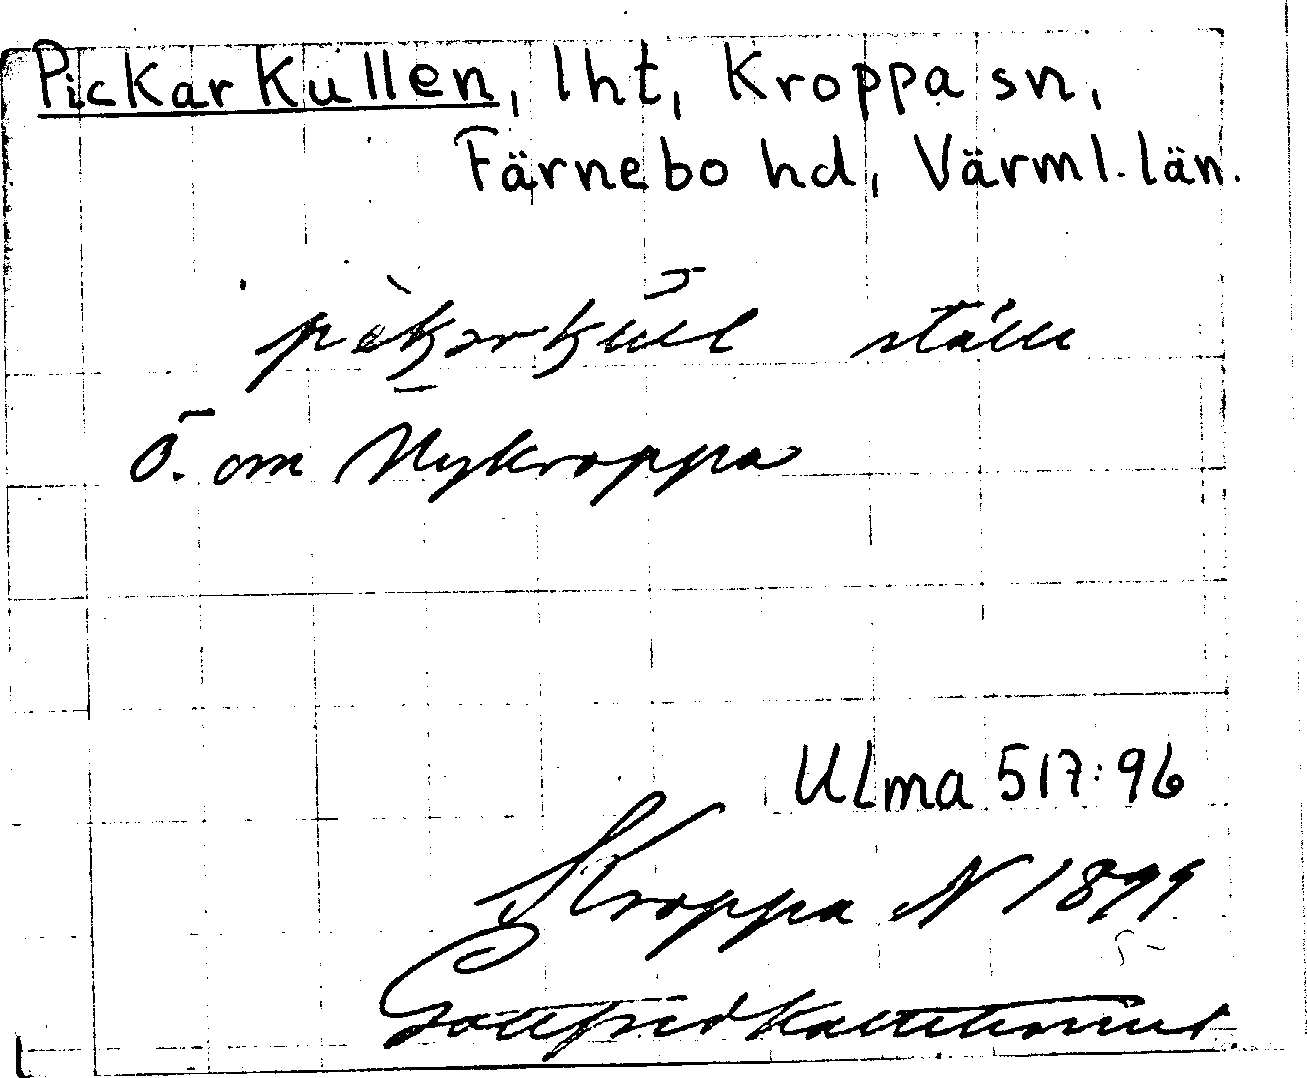 Pickarkullen, lht, Kroppa sn,
Färnebo hd, Värml. län.
ställe
Ö. om Nykroppa
ULma 517:96
Kroppa N 1899
Gottfrid Kallstenius